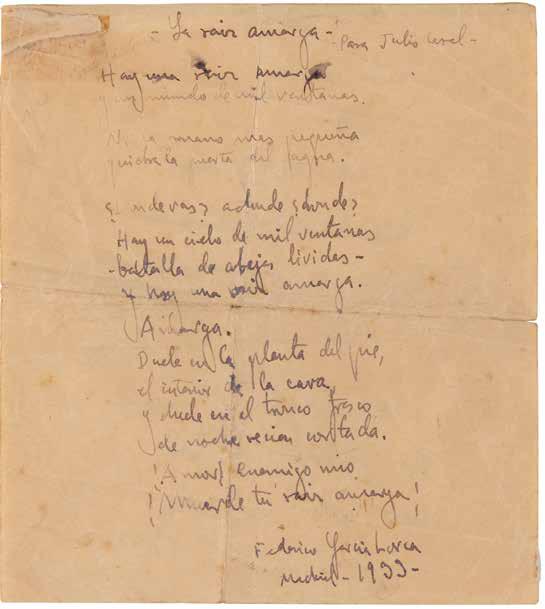 - La raiz amarga -
- Para Julio
Hay una raiz amarga
y un mundo de mil ventanas.
Ni la mano mas pequeña
quiebra la puerta del agua.
¿ adonde ¿donde?
Hay un cielo de mil ventanas
- batalla de abejas lividas -
y hay una raiz amarga.
Amarga.
Duele en la planta del pie,
el interior de la cara,
y duele en el tronco fresco
de noche recien cortada.
¡Amor! Enemigo mio
¡Muerde tu raiz amarga!
Federico García Lorca
Madrid - 1933 -